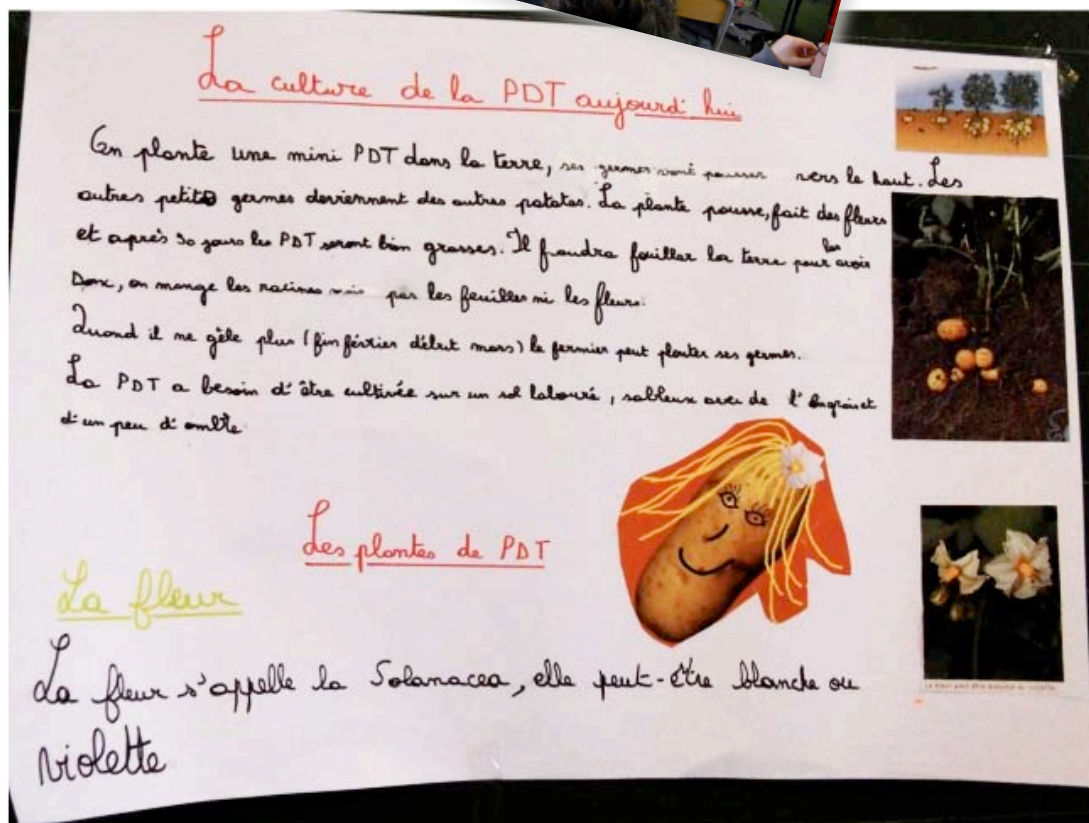 La culture de la PDT aujourd'hui
On plante une mini PDT dans la terre, ses germes vont pousser vers le haut. Les
autres petits germes deviennent des autres patates. La plante pousse, fait des fleurs
et après 90 jours les PDT seront bien grasses. Il faudra fouiller la terre pour les avoir
Donc, on mange les racines mais pas les feuilles ni les fleurs.
Quand il ne gèle plus (fin février début mars) le fermier peut planter ses germes.
La PDT a besoin d'être cultivée sur un sol labouré, sableux avec de l'engrais et
d'un peu d'ombre
Les plantes de PDT
La fleur
La fleur s'appelle la Solanacea, elle peut-être blanche ou
violette
La fleur peut être blanche ou violette.